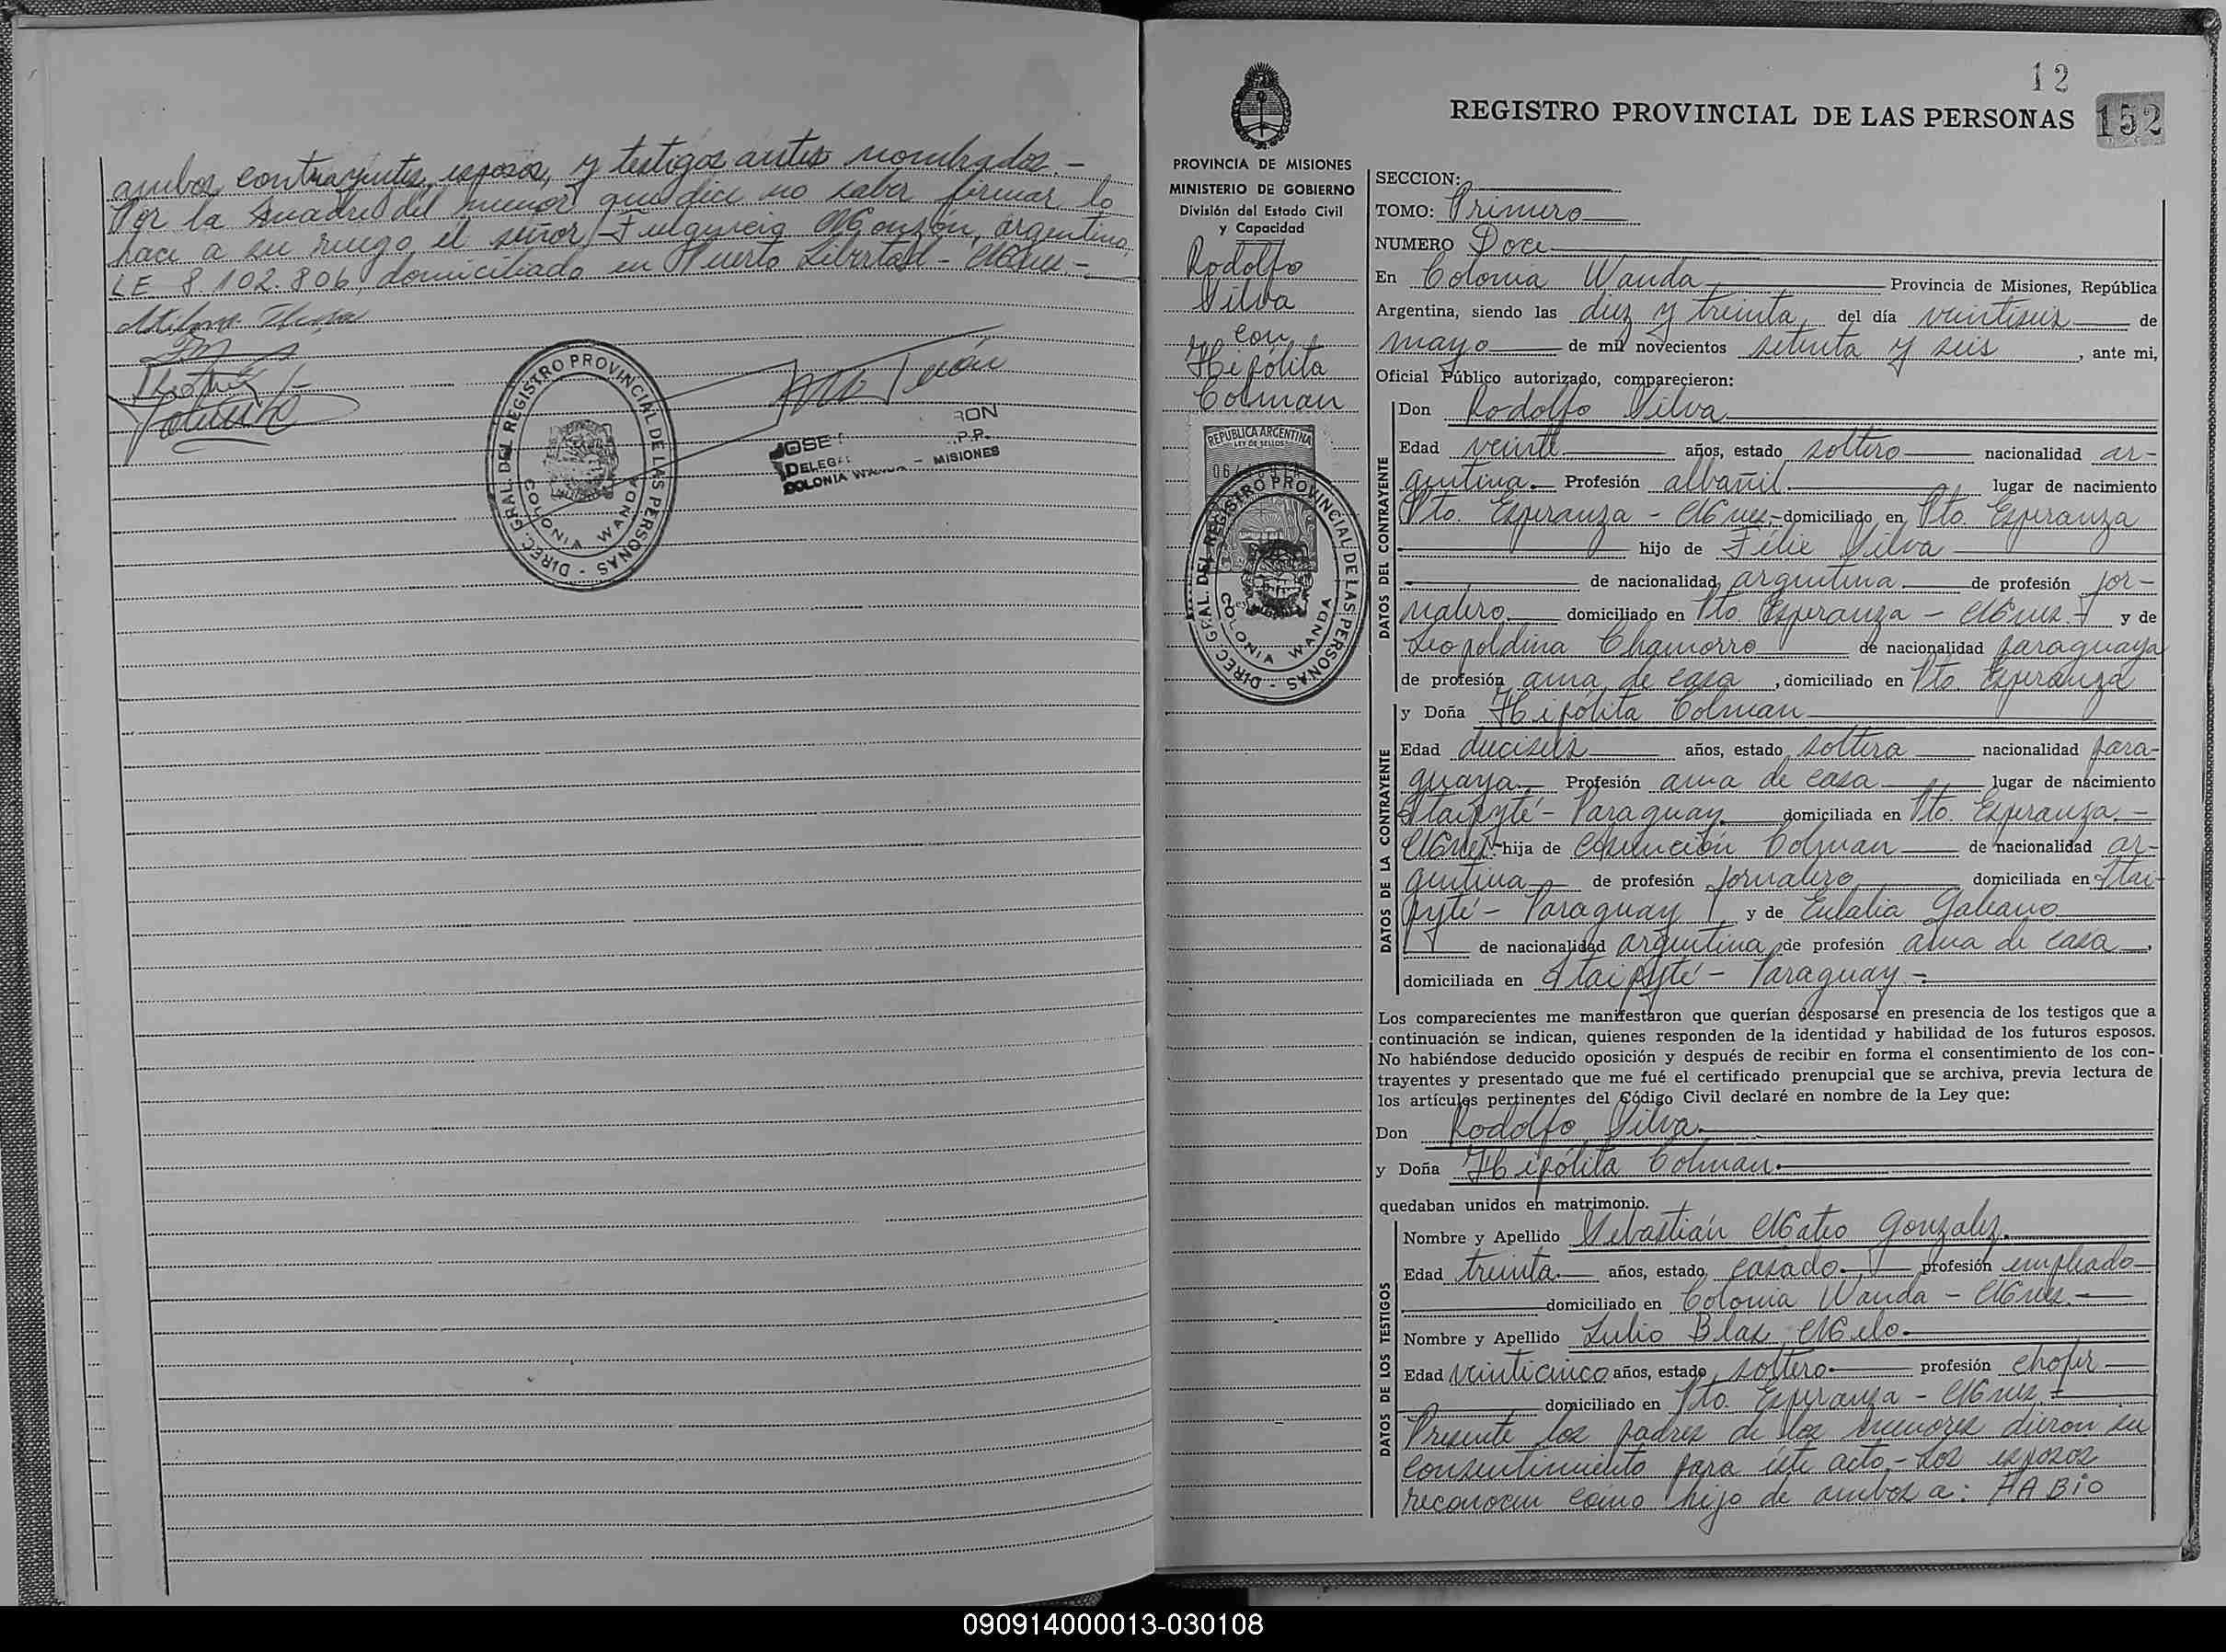 ambos contrayentes, esposos, y testigos antes nombrados.-
Por la madre del menor que dice no saber firmar lo
hace a su ruego el señor Fulgencio Monzón, argentino,
LE 8.102.806, domiciliado en Puerto Libertad - Mnes.-
DIREC. GRAL. DEL REGISTRO PROVINCIAL DE LAS PERSONAS -
COLONIA WANDA
JOSE RON
DELEGA P.P.
COLONIA WANDA - MISIONES
12
REGISTRO PROVINCIAL DE LAS PERSONAS 152
PROVINCIA DE MISIONES
MINISTERIO DE GOBIERNO
División del Estado Civil
y Capacidad
Rodolfo
Silva
con
Hipólita
Colman
REPUBLICA ARGENTINA
LEY DE SELLOS
DIREC. GRAL. DEL REGISTRO PROVINCIAL DE LAS PERSONAS -
COLONIA WANDA
SECCION:
TOMO: Primero
NUMERO Doce
En Colonia Wanda Provincia de Misiones, República
Argentina, siendo las diez y treinta del día veintiseis de
mayo de mil novecientos setenta y seis, ante mi,
Oficial Público autorizado, comparecieron:
DATOS DEL CONTRAYENTE
Don Rodolfo Silva
Edad veinte años, estado soltero nacionalidad ar-
gentina. Profesión albañil. lugar de nacimiento
Pto. Esperanza - Mnes,- domiciliado en Pto. Esperanza
hijo de Felix Silva
de nacionalidad argentina de profesión jor-
nalero. domiciliado en Pto. Esperanza - Mnes.- y de
Leopoldina Chamorro de nacionalidad paraguaya
de profesión ama de casa, domiciliado en Pto. Esperanza
DATOS DE LA CONTRAYENTE
y Doña Hipólita Colman
Edad dieciseis años, estado soltera nacionalidad para-
guaya. Profesión ama de casa lugar de nacimiento
Itaipyté - Paraguay. domiciliada en Pto. Esperanza.-
Mnes.- hija de Asunción Colman de nacionalidad ar-
gentina de profesión jornalero domiciliada en Itai-
pyté - Paraguay y de Eulalia Galeano
de nacionalidad argentina de profesión ama de casa,
domiciliada en Itaipyté - Paraguay -
Los comparecientes me manifestaron que querían desposarse en presencia de los testigos que a
continuación se indican, quienes responden de la identidad y habilidad de los futuros esposos.
No habiéndose deducido oposición y después de recibir en forma el consentimiento de los con-
trayentes y presentado que me fué el certificado prenupcial que se archiva, previa lectura de
los artículos pertinentes del Código Civil declaré en nombre de la Ley que:
Don Rodolfo Silva.
y Doña Hipólita Colman.
quedaban unidos en matrimonio.
DATOS DE LOS TESTIGOS
Nombre y Apellido Sebastián Mateo Gonzalez.
Edad treinta. años, estado casado. profesión empleado
domiciliado en Colonia Wanda - Mnes.-
Nombre y Apellido Julio Blas Melo.
Edad veinticinco años, estado soltero. profesión chofer
domiciliado en Pto. Esperanza - Mnes.-
Presente los padres de los menores dieron su
consentimiento para éste acto.- Los esposos
reconocen como hijo de ambos a: FABIO
090914000013-030108